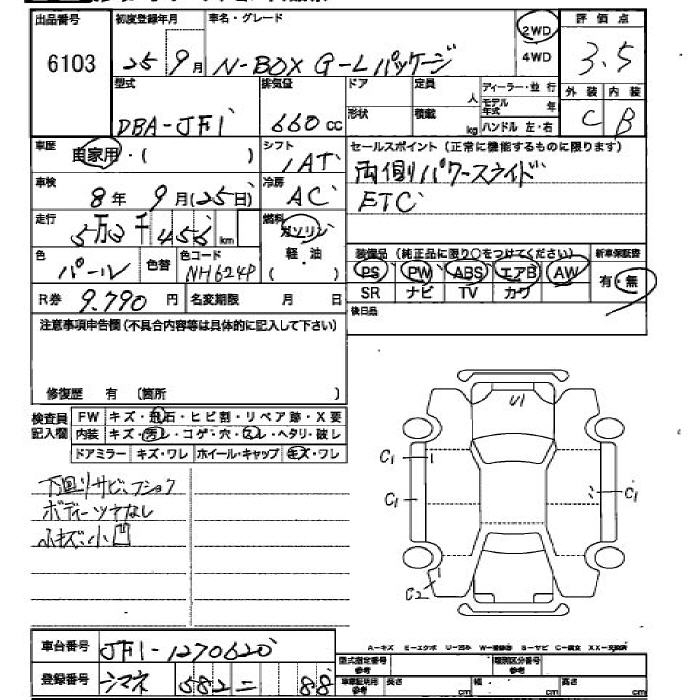 出品番号 初度登録年月 車名・グレード 2WD 評価点
6103 25 9月 N-BOX G-Lパッケージ 4WD 3.5
型式 排気量 ドア 定員 人 ディーラー・並行 外装 内装
DBA-JF1 660cc 形状 積載 kg モデル年式 年 C B
ハンドル 左・右
車歴 自家用・( ) シフト 1AT セールスポイント(正常に機能するものに限ります)
両側パワースライド
車検 8年 9月(25日) 冷房 AC ETC
走行 km 燃料 ガソリン
軽・油 ( )
色 パール 色替 色コード NH624P 装備品(純正品に限り○をつけてください) 新車保証書
PS PW ABS エアB AW 有・無
SR ナビ TV カワ
R券 9.790円 名変期限 月 日 後日品
注意事項申告欄(不具合内容等は具体的に記入して下さい)
修復歴 有 〔箇所 〕
検査員記入欄 FW キズ・飛石・ヒビ割・リペア跡・X要
内装 キズ・汚レ・コゲ・穴・スレ・ヘタリ・破レ
ドアミラー キズ・ワレ ホイール・キャップ キズ・ワレ
U1
C1 C1 C1
C2
下回りサビ、フショク
ボディーツヤなし
小キズ・小凹
車台番号 JF1-1270620
登録番号 シマネ 582 ニ 88
A-キズ E-エクボ U-凹み W-補修跡 S-サビ C-腐食 XX-交換済
型式指定番号 参考 類別区分番号 参考
車庫証明用 参考 長さ cm 幅 cm 高さ cm